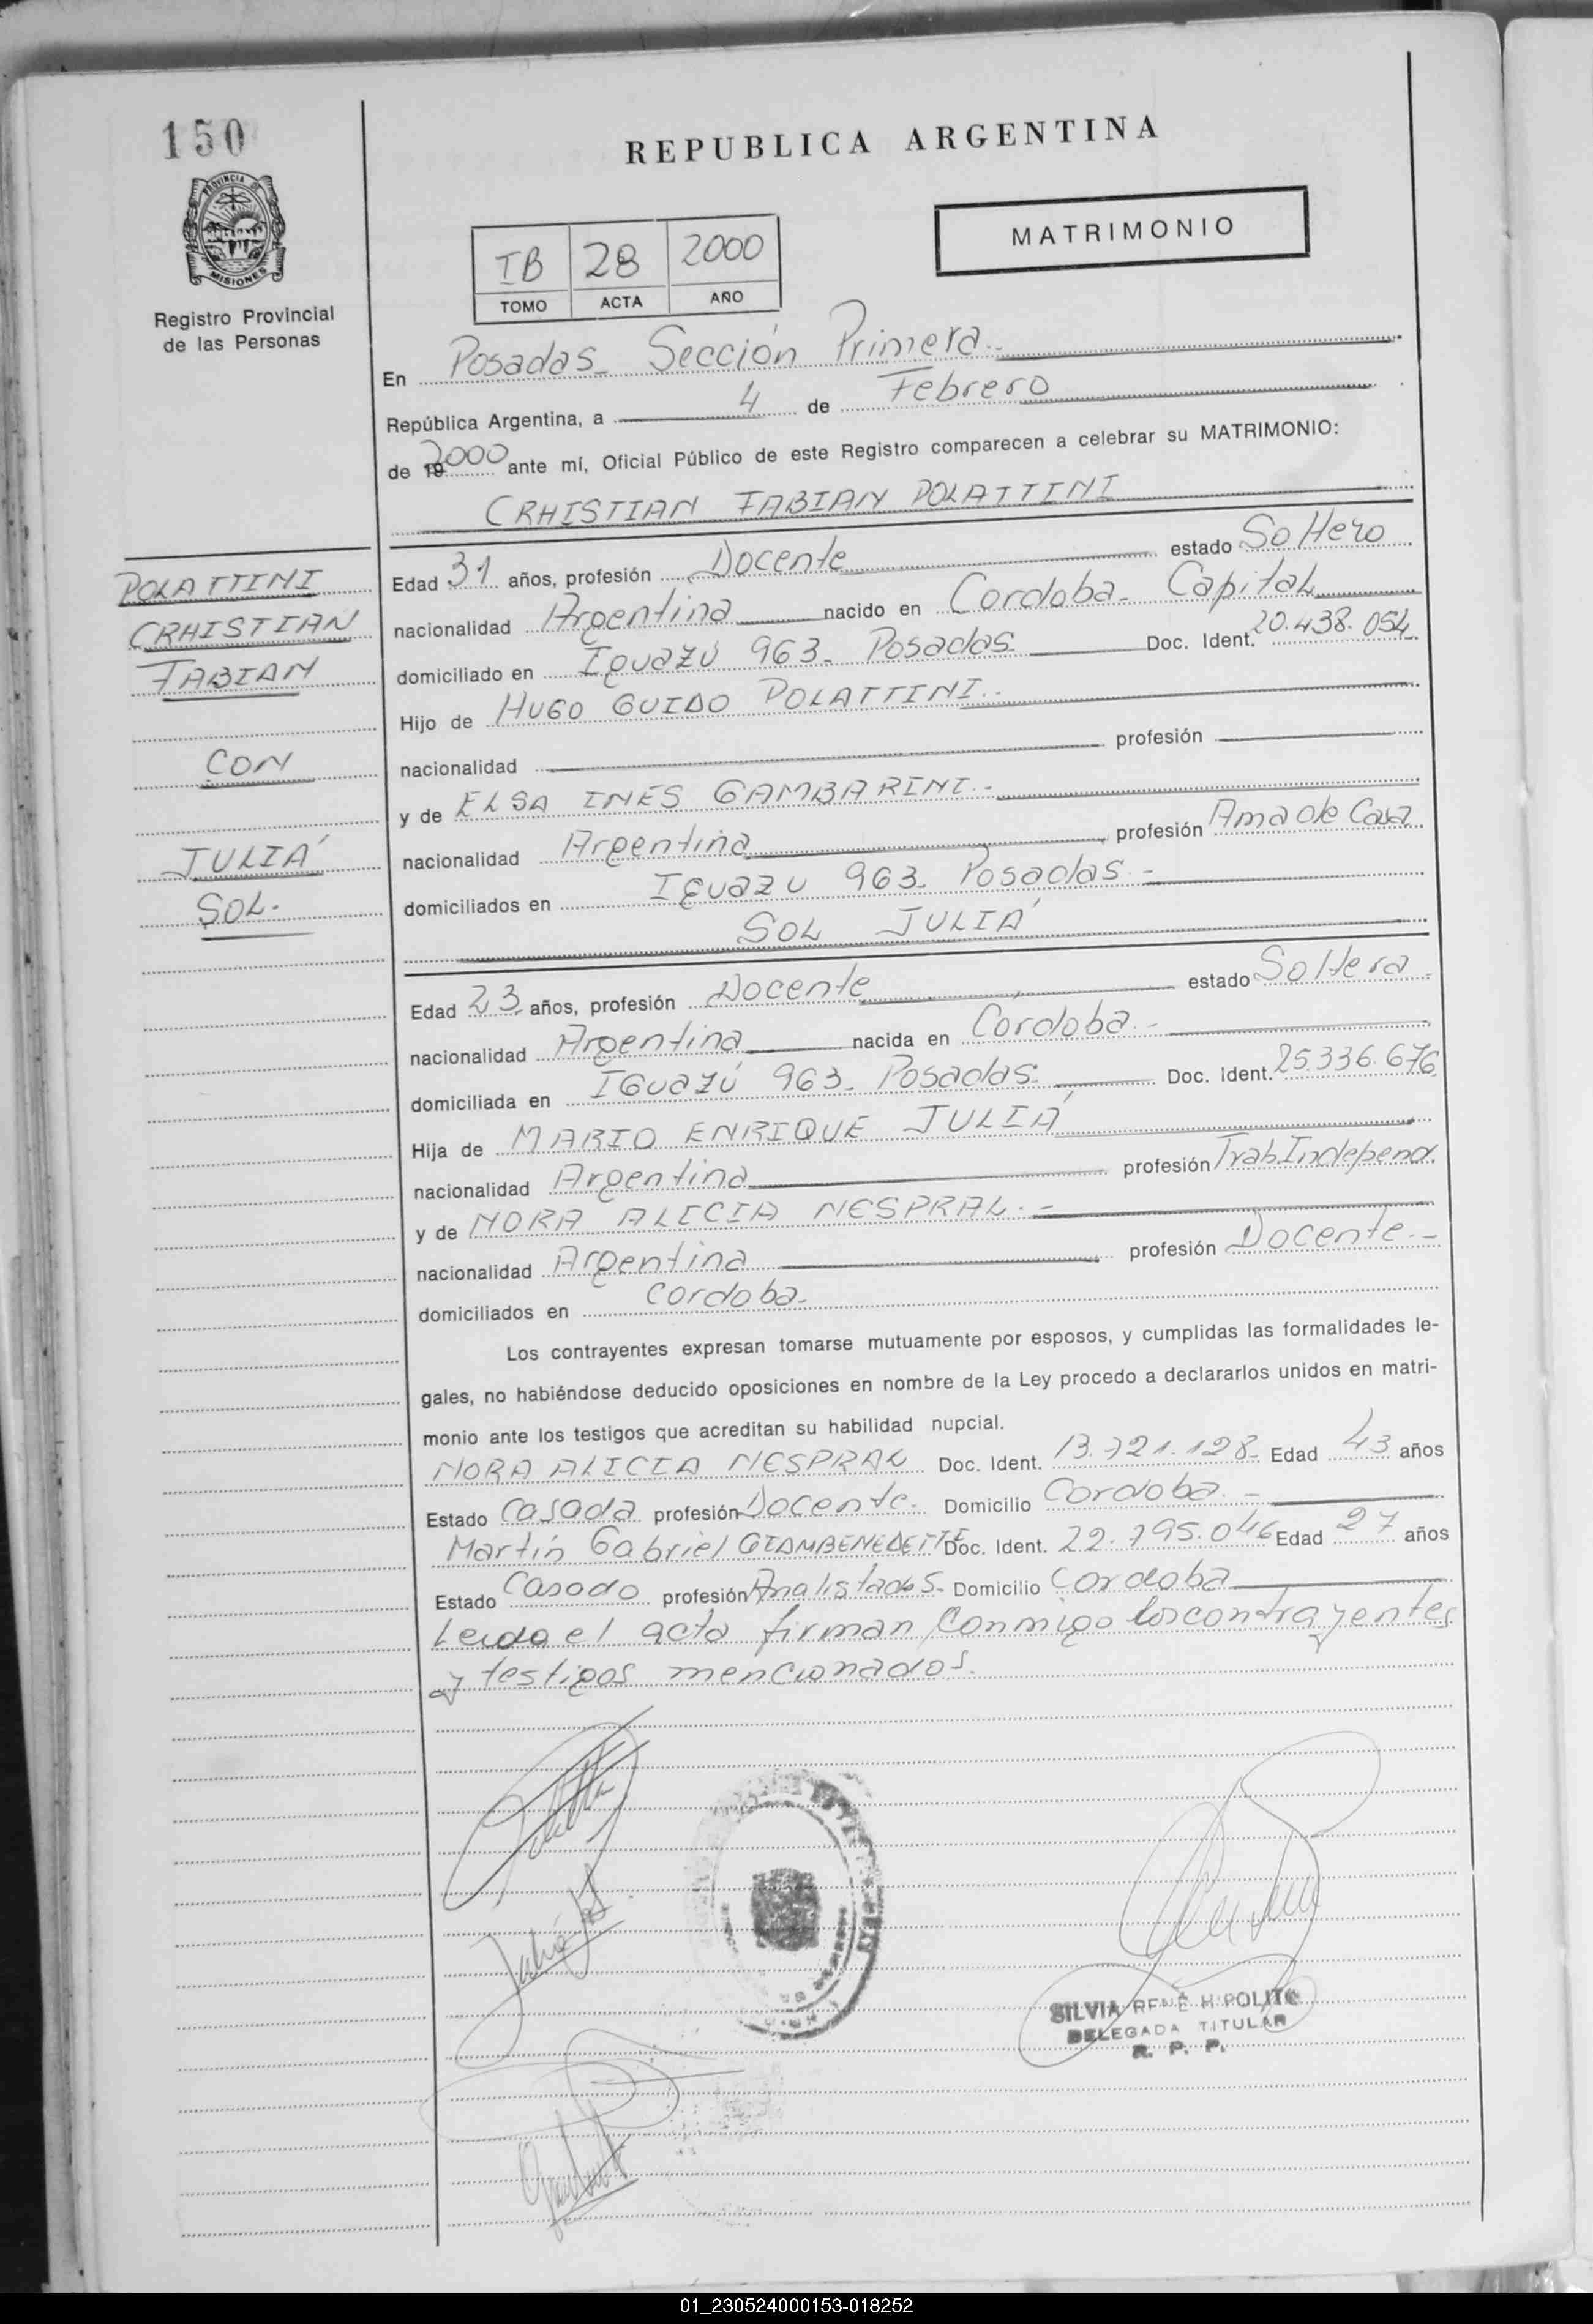 150
PROVINCIA DE
MISIONES
Registro Provincial
de las Personas
REPUBLICA ARGENTINA
MATRIMONIO
IB 28 2000
TOMO ACTA AÑO
En Posadas_ Sección Primera.-
República Argentina, a 4 de Febrero
de 2000 ante mí, Oficial Público de este Registro comparecen a celebrar su MATRIMONIO:
CRHISTIAN FABIAN POLATTINI
POLATTINI
CRHISTIAN
FABIAN
CON
JULIÁ
SOL.-
Edad 31 años, profesión Docente estado Soltero
nacionalidad Argentina nacido en Cordoba_ Capital
domiciliado en Iguazú 963_ Posadas Doc. Ident. 20.438.054
Hijo de HUGO GUIDO POLATTINI.-
nacionalidad profesión
y de ELSA INÉS GAMBARINI.-
nacionalidad Argentina profesión Ama de Casa
domiciliados en Iguazu 963_ Posadas.-
SOL JULIÁ
Edad 23 años, profesión Docente estado Soltera
nacionalidad Argentina nacida en Córdoba.-
domiciliada en IGuazú 963_ Posadas. Doc. Ident. 25.336.676
Hija de MARIO ENRIQUE JULIÁ
nacionalidad Argentina profesión Trab Independ.
y de NORA ALICIA NESPRAL.-
nacionalidad Argentina profesión Docente.-
domiciliados en Cordoba.
Los contrayentes expresan tomarse mutuamente por esposos, y cumplidas las formalidades le-
gales, no habiéndose deducido oposiciones en nombre de la Ley procedo a declararlos unidos en matri-
monio ante los testigos que acreditan su habilidad nupcial.
NORA ALICIA NESPRAL Doc. Ident. 13.721.128 Edad 43 años
Estado Casada profesión Docente. Domicilio Cordoba.-
Martín Gabriel Doc. Ident. 22.795.046 Edad 27 años
Estado Casado profesión Analista de S. Domicilio Cordoba
Leida el acta firman conmigo los contrayentes
y testigos mencionados.
SILVIA RENÉ HIPOLITO
DELEGADA TITULAR
R. P. P.
01_230524000153-018252